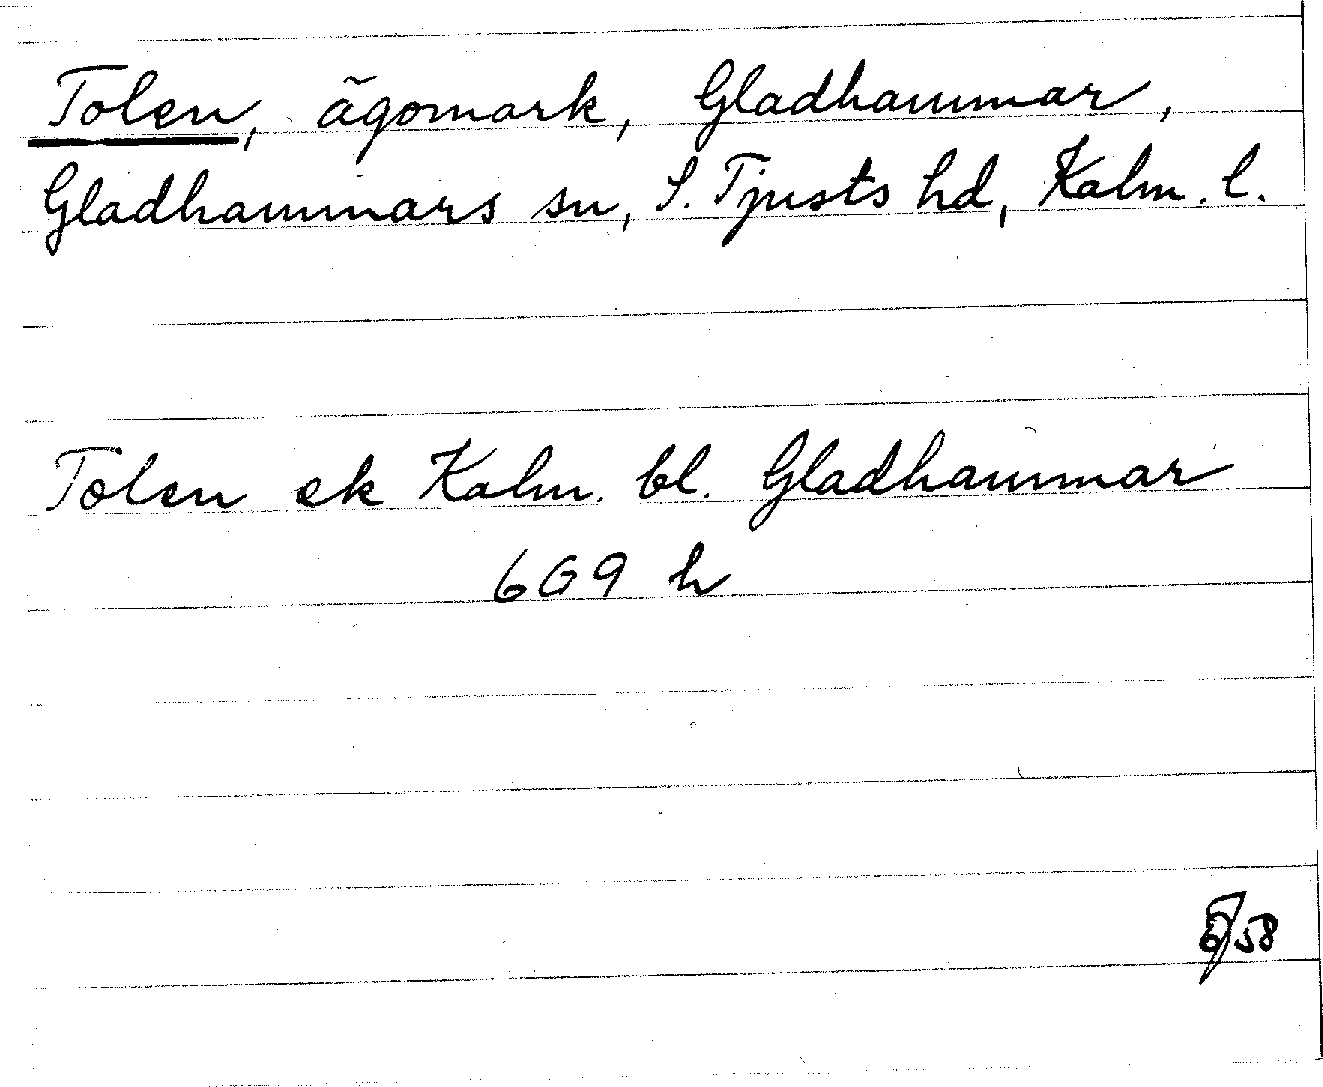 Tolen, ägomark, Gladhammar,
Gladhammars sn, S. Tjusts hd, Kalm. l.
Tolen ek Kalm. bl. Gladhammar
6G9 h